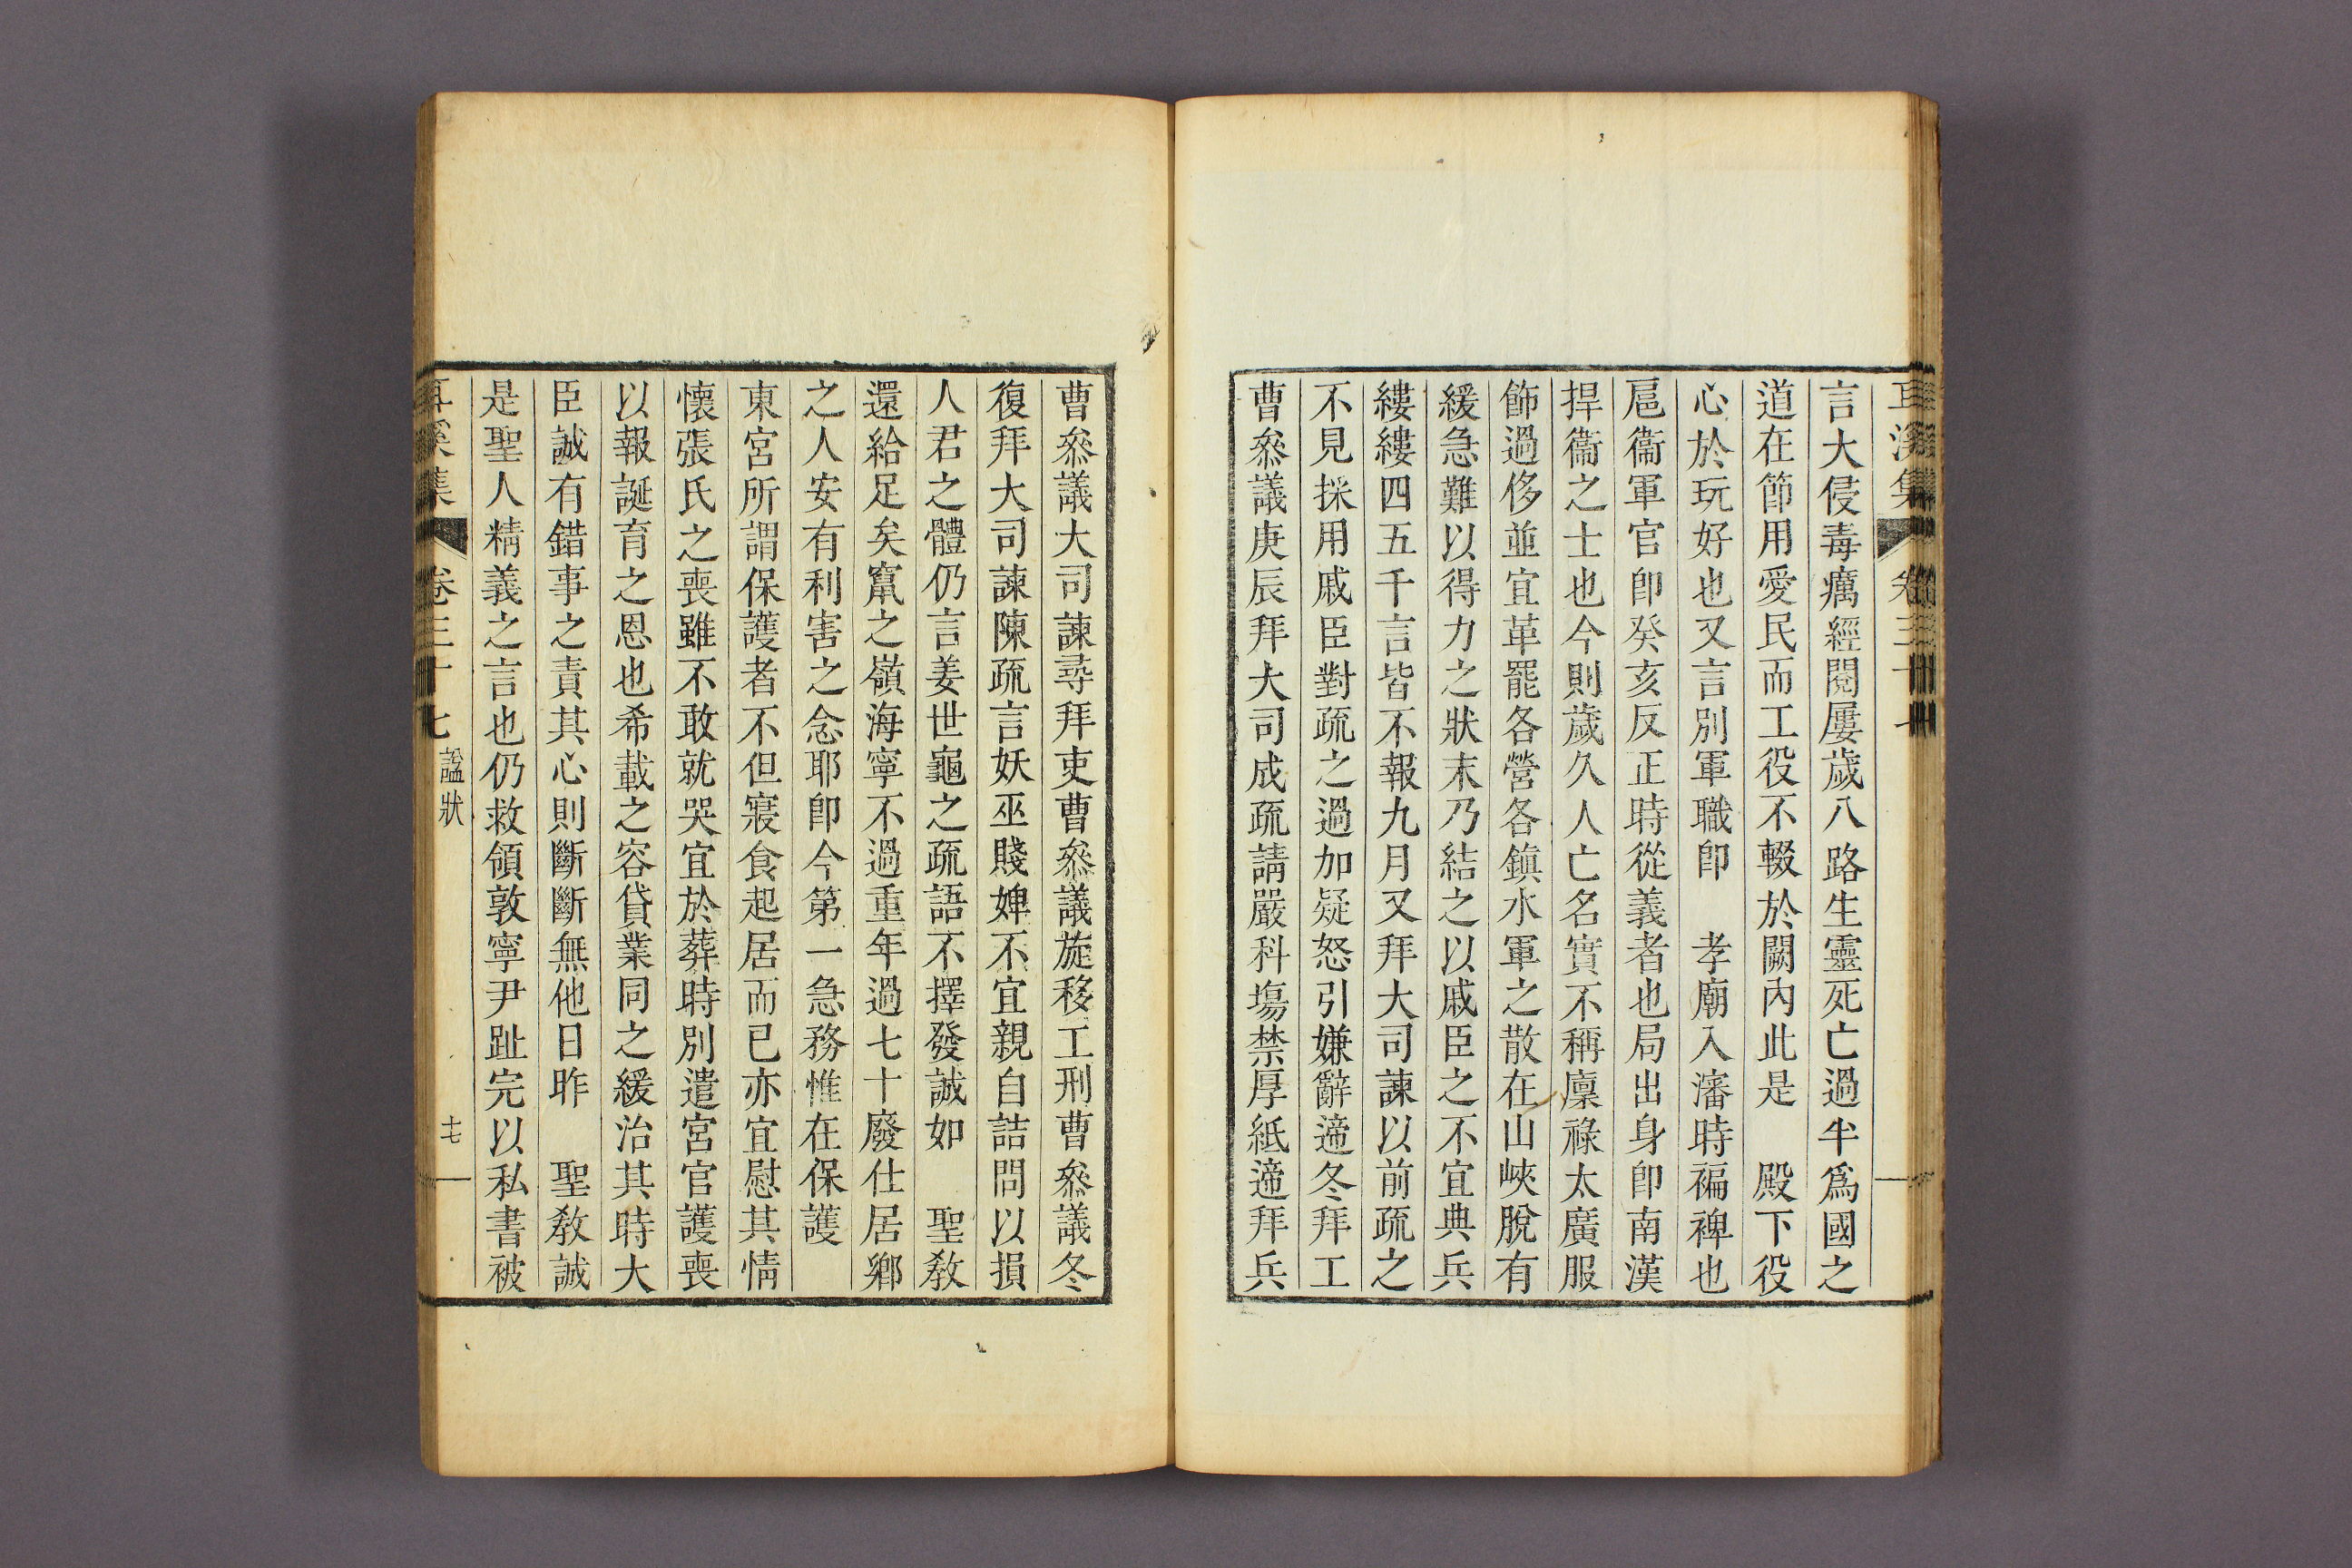 言大侵毒癘經閱屢歲八路生靈死亡過半爲國之
道在節用愛民而工役不輟於闕內此是 殿下役
心於玩好也又言別軍職卽 孝廟入瀋時褊裨也
扈衞軍官卽癸亥反正時從義者也局出身卽南漢
捍衞之士也今則歲久人亡名實不稱廩祿太廣服
飾過侈並宜革罷各營各鎭水軍之散在山峽脫有
緩急難以得力之狀末乃結之以戚臣之不宜典兵
縷縷四五千言皆不報九月又拜大司諫以前疏之
不見採用戚臣對疏之過加疑怒引嫌辭遞冬拜工
曹叅議庚辰拜大司成疏請嚴科塲禁厚紙遞拜兵
曹叅議大司諫尋拜吏曹叅議旋移工刑曹叅議冬
復拜大司諫陳疏言妖巫賤婢不宜親自詰問以損
人君之體仍言姜世龜之疏語不擇發誠如 聖敎
還給足矣竄之嶺海寧不過重年過七十廢仕居鄕
之人安有利害之念耶卽今第一急務惟在保護
東宮所謂保護者不但寢食起居而已亦宜慰其情
懷張氏之喪雖不敢就哭宜於葬時別遣宮官護喪
以報誕育之恩也希載之容貸業同之緩治其時大
臣誠有錯事之責其心則斷斷無他日昨 聖敎誠
是聖人精義之言也仍救領敦寧尹趾完以私書被
卷三十七 諡狀 十七